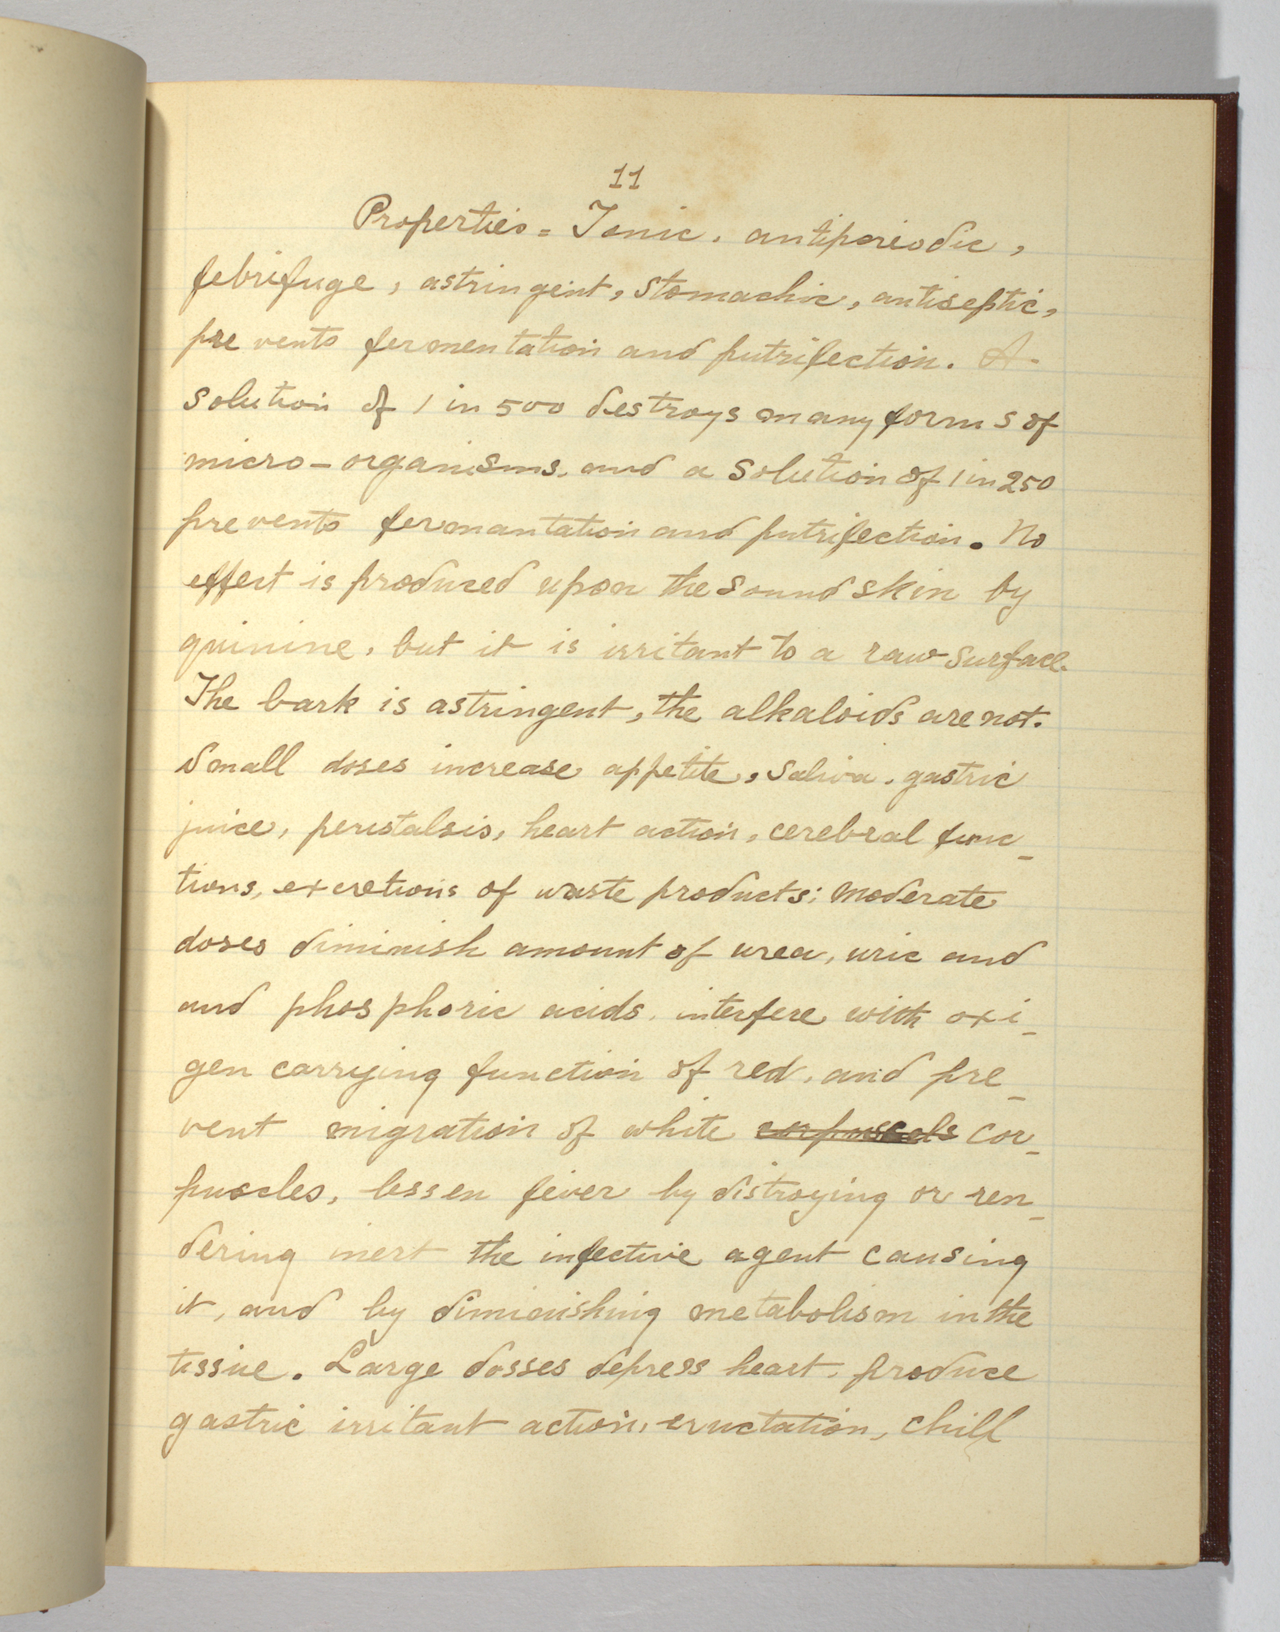 11
Properties = Tonic, antiperiodic,
febrifuge, astringent, stomachic, antiseptic,
prevents fermentation and putrifection. A
solution of 1 in 500 destroys many forms of
micro-organisms, and a solution of 1 in 250
prevents fermantation and putrifection. No
effect is produced upon the sound skin by
quinine, but it is irritant to a raw surface.
The bark is astringent, the alkaloids are not.
Small doses increase appetite, saliva, gastric
juice, peristalsis, heart action, cerebral func-
tions, excretions of waste products; moderate
doses diminish amount of urea, uric and
and phosphoric acids, interfere with oxi-
gen carrying function of red, and pre-
vent migration of white corpuscels cor-
puscles, lessen fever by distroying or ren-
dering inert the infective agent causing
it, and by diminishing metabolism in the
tissue. Large dosses depress heart, produce
gastric irritant action, eructation, chill